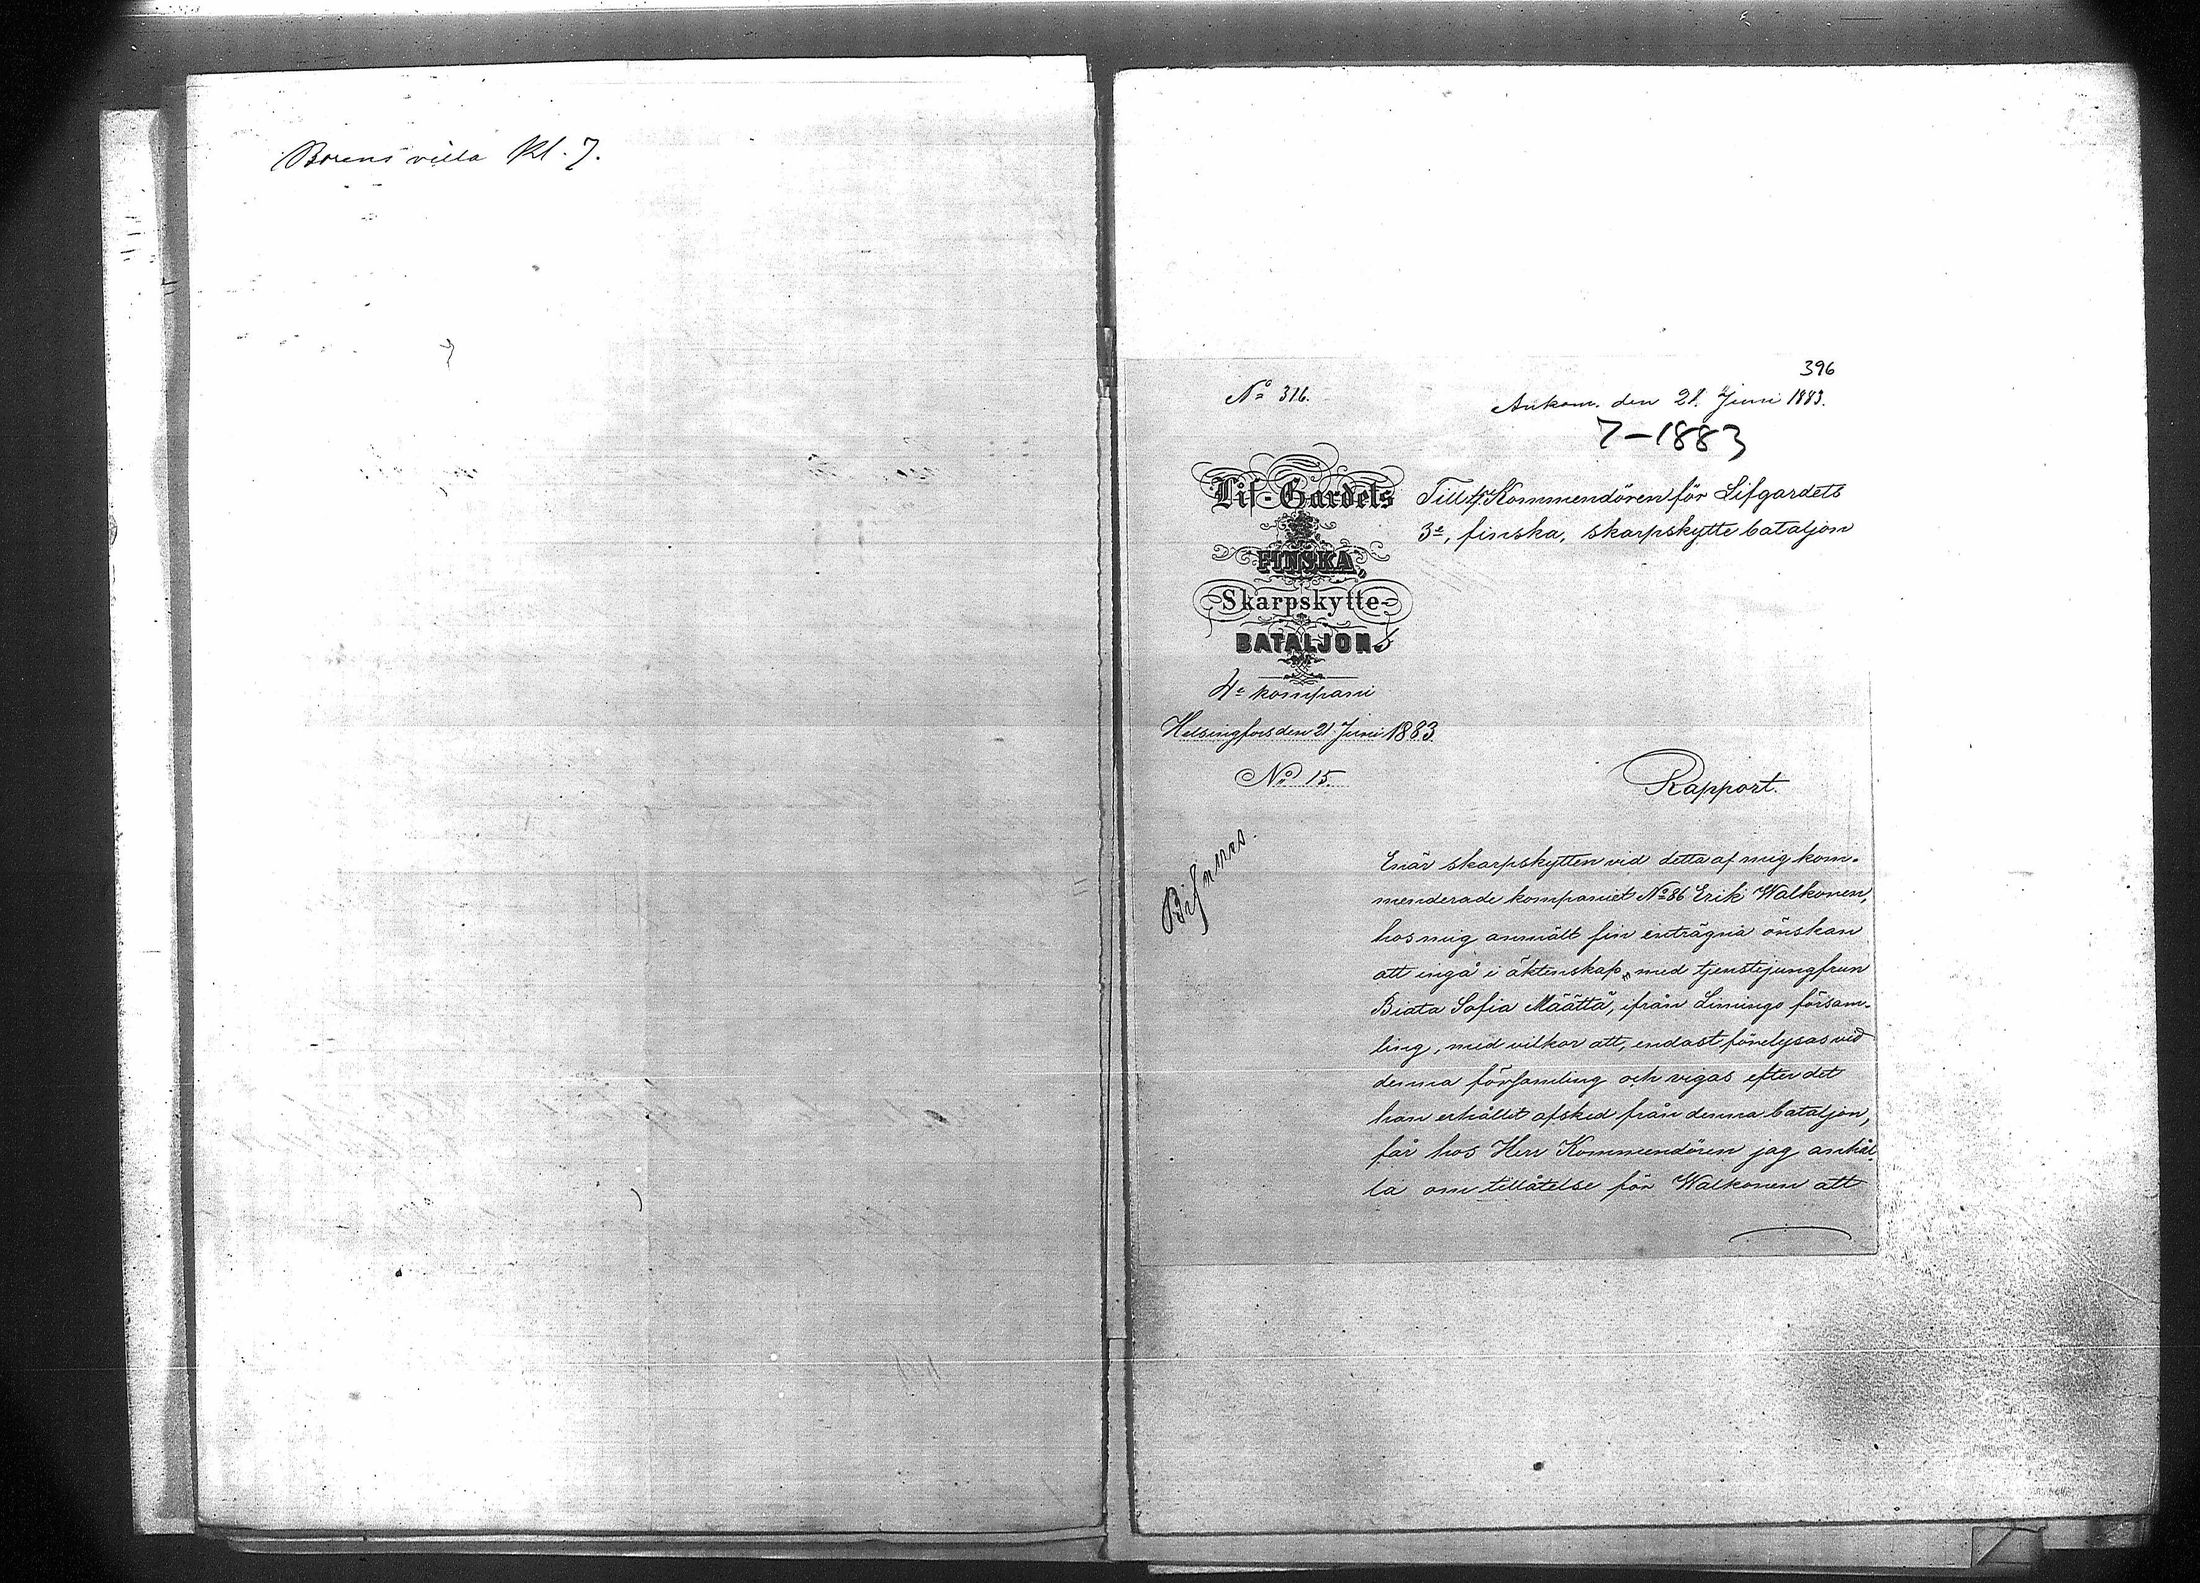 Borens villa Kl. 7.
396
No 316.
Ankom. den 21. Juni 1883.
7-1883
Lif-Gardets
3e
FINSKA,
Skarpskytte-
BATALJON s
4e kompani
Helsingfors den 21 Juni 1883.
No 15.
Till Kommendören för Lifgardets
3e, finska, skarpskytte bataljon
Rapport.
Bifalles.
Enär skarpskytten vid detta af mig kom-
menderade kompaniet No 86 Erik Walkonen,
hos mig anmält sin enträgna önskan
att ingå i äktenskap, med tjenstejungfrun
Biata Sofia Määttä, ifrån Limingo försam-
ling, med vilkor att, endast förelysas vid
denna församling och vigas efter det
han erhållit afsked från denna bataljon,
får hos Herr Kommendören jag anhål-
la om tillåtelse för Walkonen att